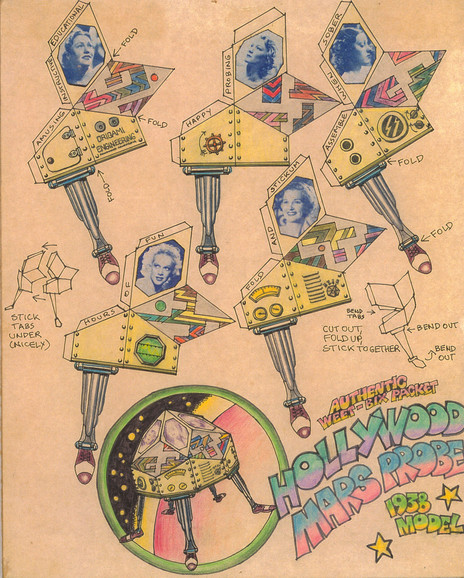 INSTRUCTIVE
EDUCATIONAL
FOLD
AMUSING
ORIGAMI
ENGINEERING
FOLD
FOLD
PROBING
HAPPY
SOBER
WHEN
ASSEMBLE
FOLD
FOLD
FUN
OF
HOURS
STICKUM
AND
FOLD
STICK
TABS
UNDER
(NICELY)
BEND
TABS
CUT OUT,
FOLD UP,
STICK TOGETHER
BEND OUT
BEND
OUT
AUTHENTIC
WEET-BIX PACKET
HOLLYWOOD
MARS PROBE
1938
MODEL